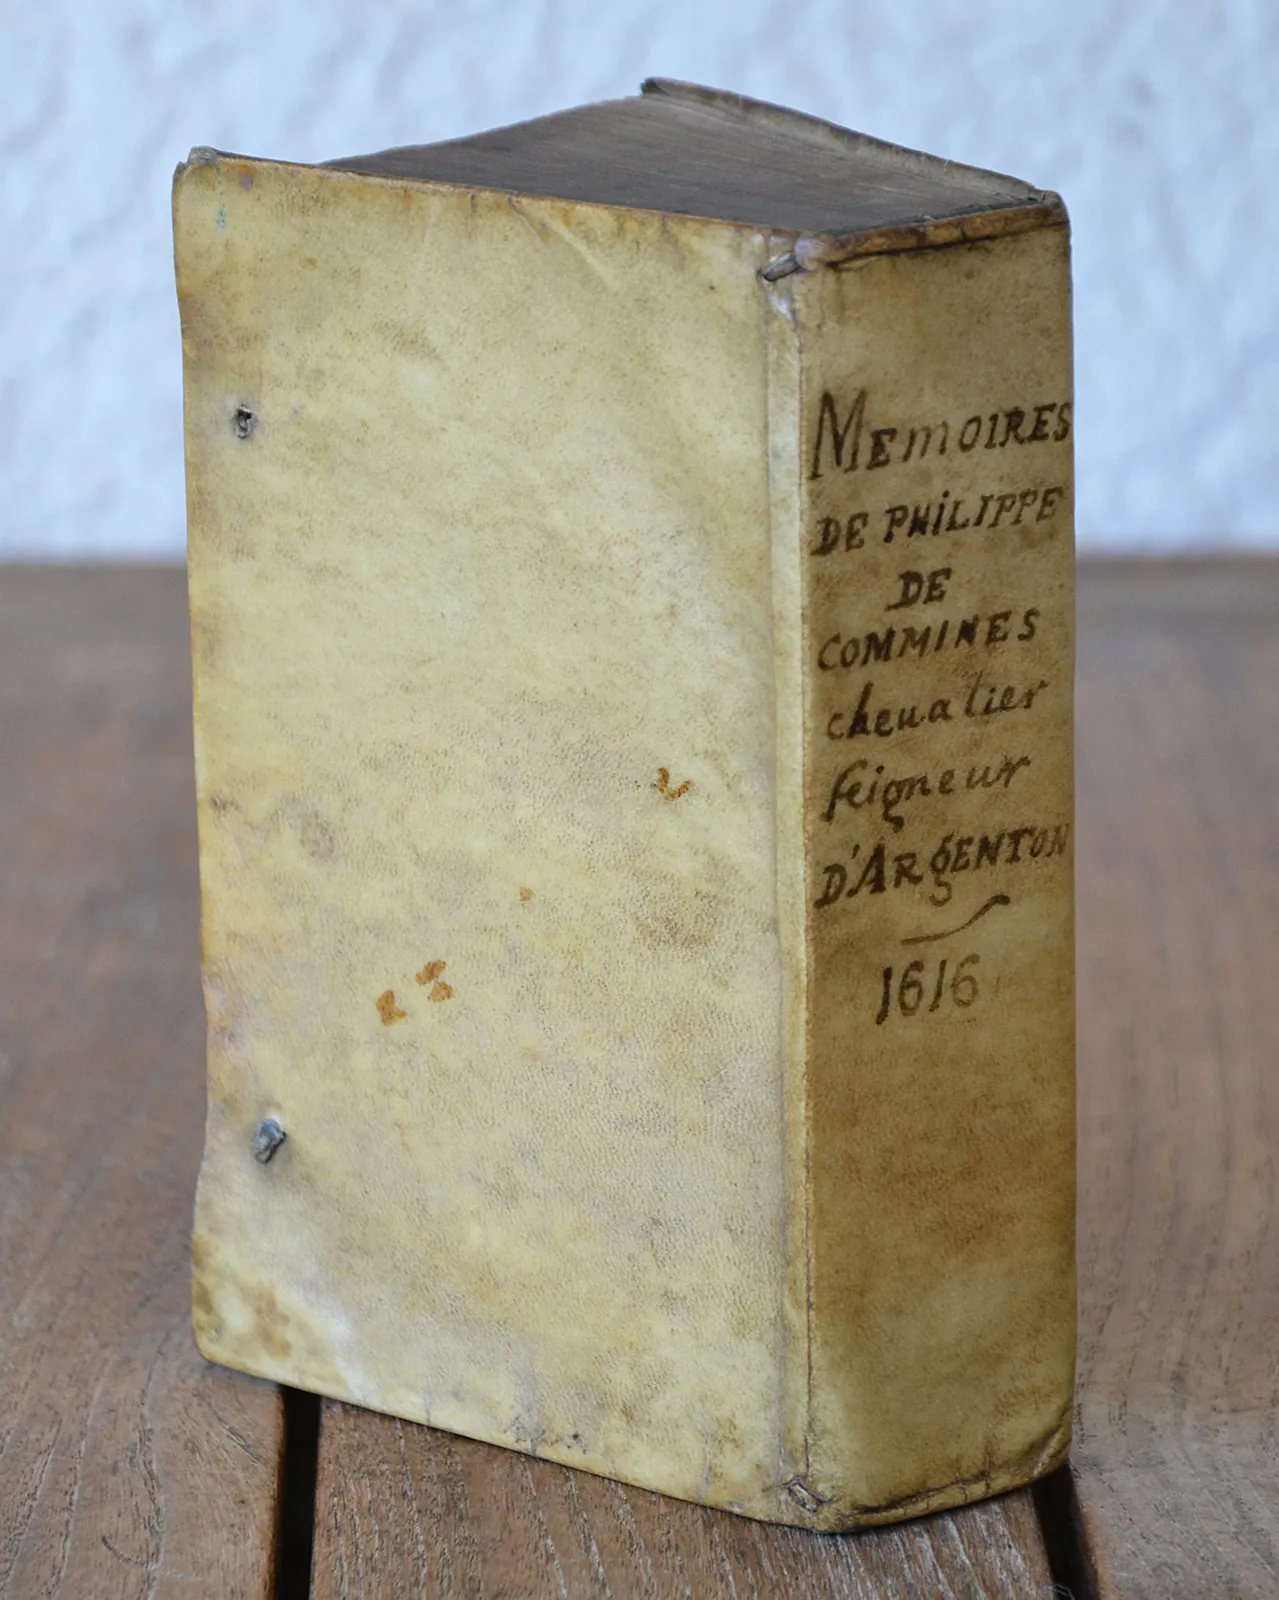 MEMOIRES
DE PHILIPPE
DE
COMMINES
cheualier
ſeigneur
D'ARGENTON
1616